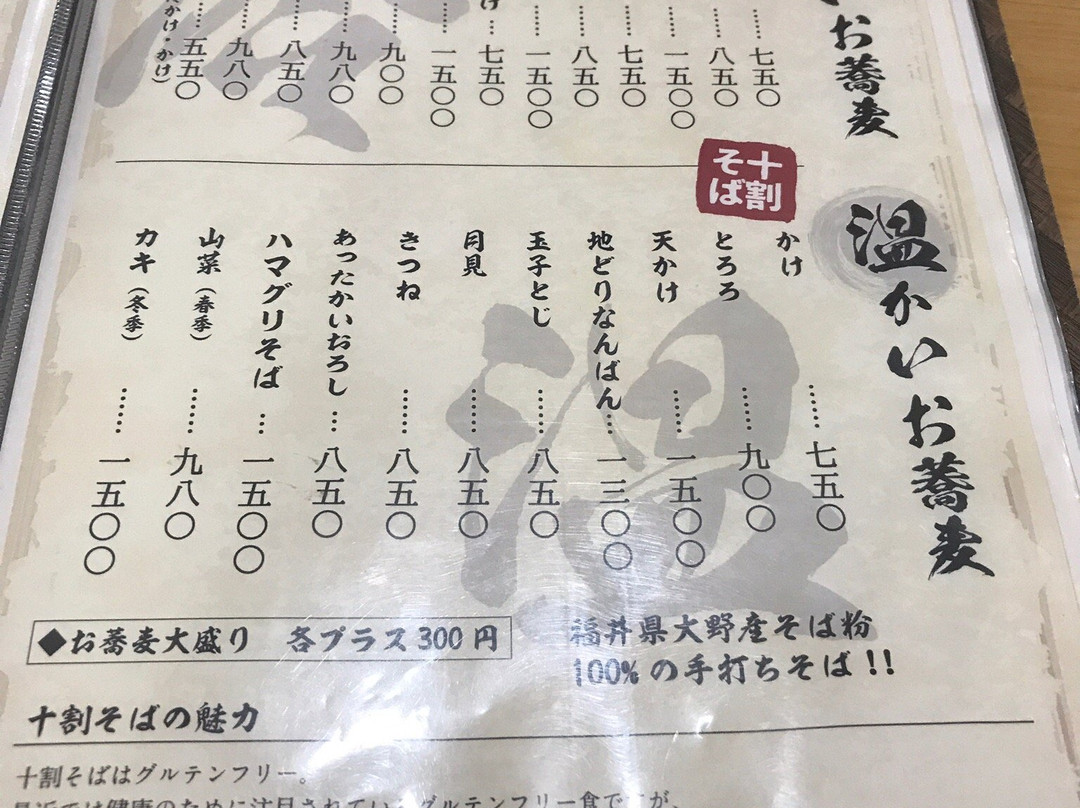 お蕎麦
……七五〇
……八五〇
……一五〇〇
……七五〇
……八五〇
……一五〇〇
け……七五〇
……一五〇〇
……九〇〇
……九八〇
……八五〇
……九八〇
かけ・かけ）……五五〇
十割
そば
温かいお蕎麦
かけ……七五〇
とろろ……九〇〇
天かけ……一五〇〇
地どりなんばん…一三〇〇
玉子とじ……八五〇
月見……八五〇
きつね……八五〇
あったかいおろし…八五〇
ハマグリそば…一五〇〇
山菜（春季）……九八〇
カキ（冬季）……一五〇〇
温
◆お蕎麦大盛り　各プラス300円
福井県大野産そば粉
100%の手打ちそば!!
十割そばの魅力
十割そばはグルテンフリー。
最近では健康のために注目されているグルテンフリー食ですが、